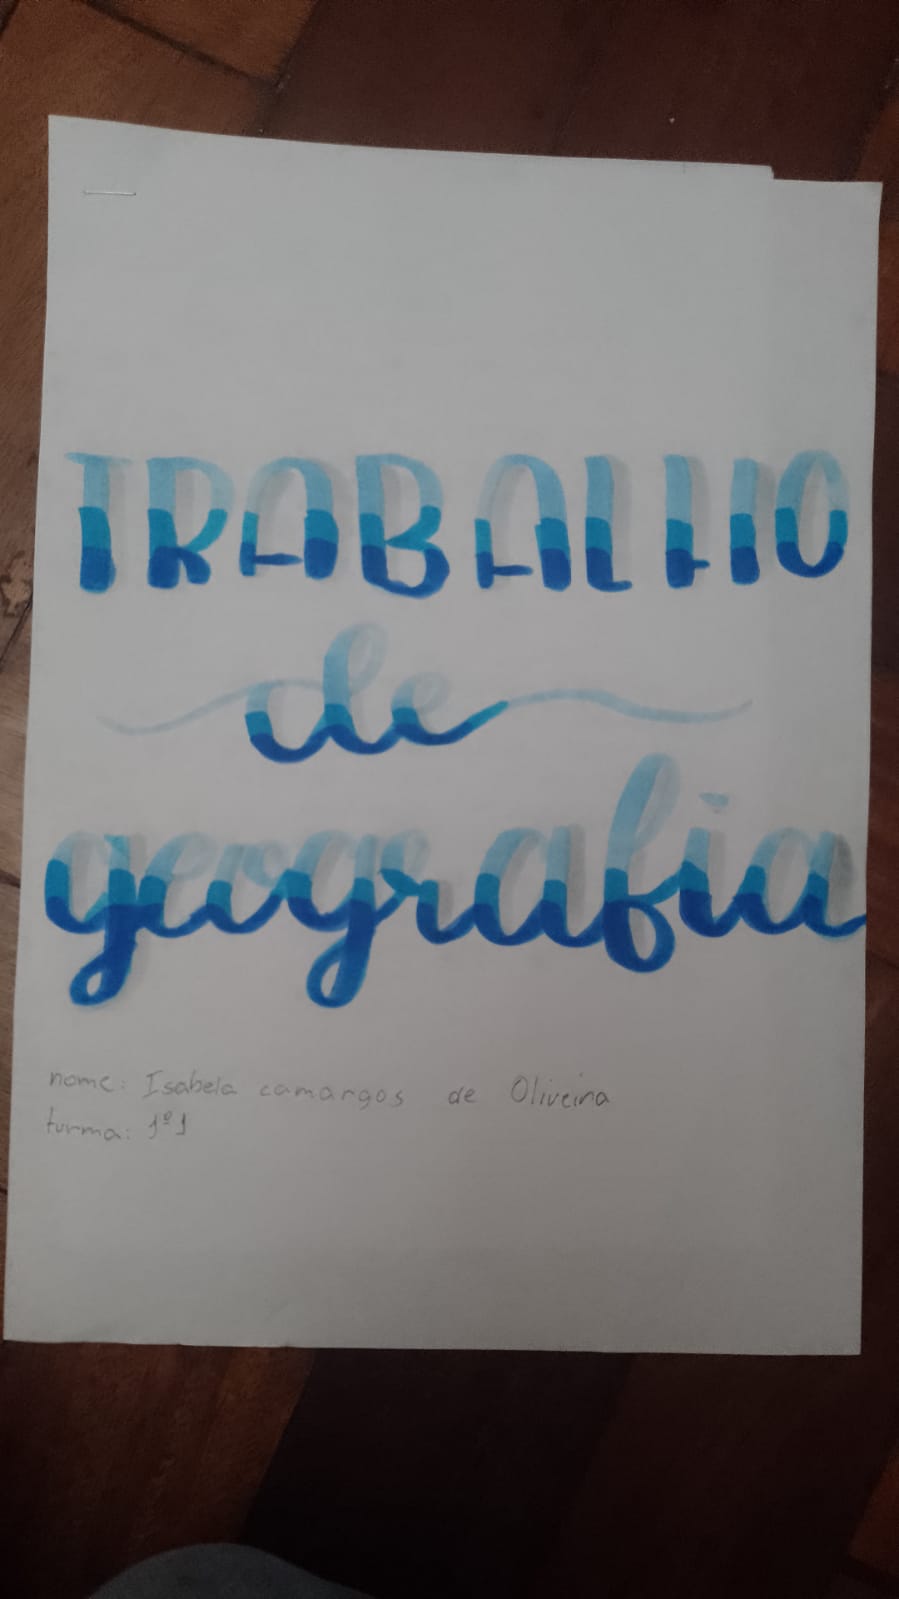 TRABALHO
de
geografia
nome: Isabela camargos de Oliveira
turma: 1º1